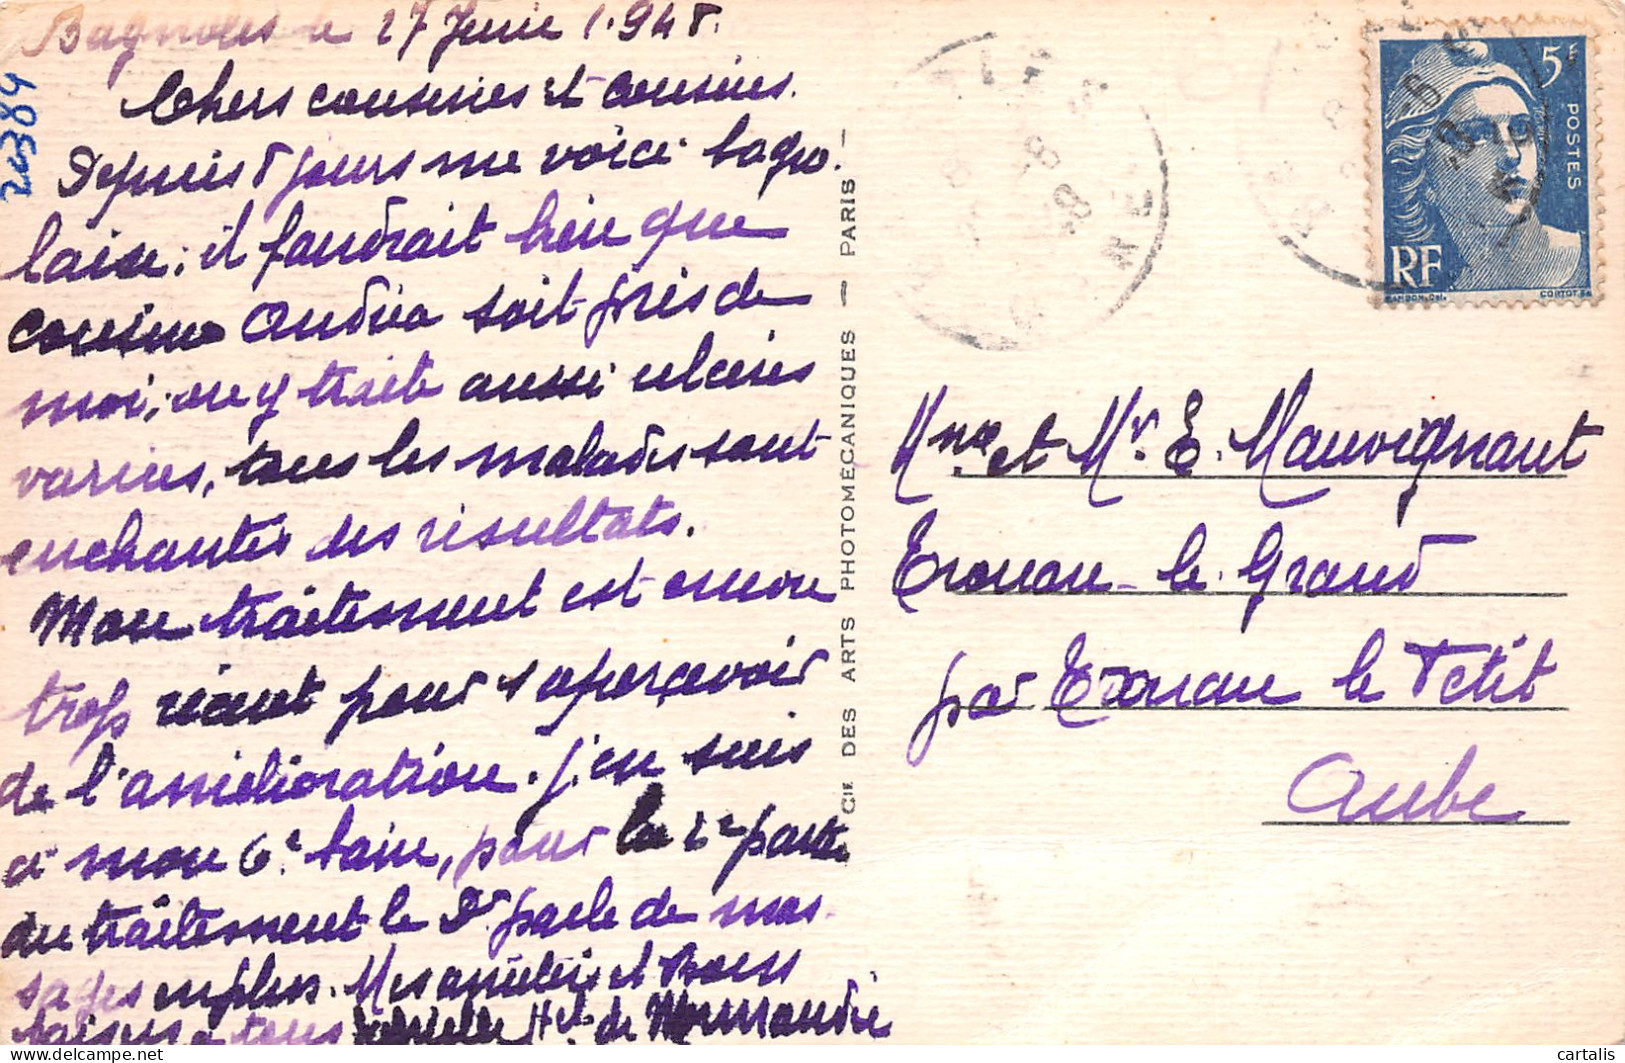 Bagnoles le 27 Juin 1.948.
Chers cousines et cousins.
Depuis 8 jours me voici bagno-
laise; il faudrait bien que
cousine Andréa soit près de
moi; on y traite aussi ulcères
varices, tous les malades sont
enchantés des résultats.
Mon traitement est encore
trop récent pour s'apercevoir
de l'amélioration. J'en suis
à mon 6e bain, pour la 2e partie
du traitement le Dr parle de mas-
sages en plus. Mes amitiés et Bons
baisers à tous Hel de Normandie
22384
CIE DES ARTS PHOTOMÉCANIQUES — PARIS —
5F
POSTES
RF
GANDON. Del.
CORTOT. Sc.
Mme et Mr. E. Mauvignant
Trouan-le-Grand
par Trouan le Petit
Aube
cartalis
delcampe.net